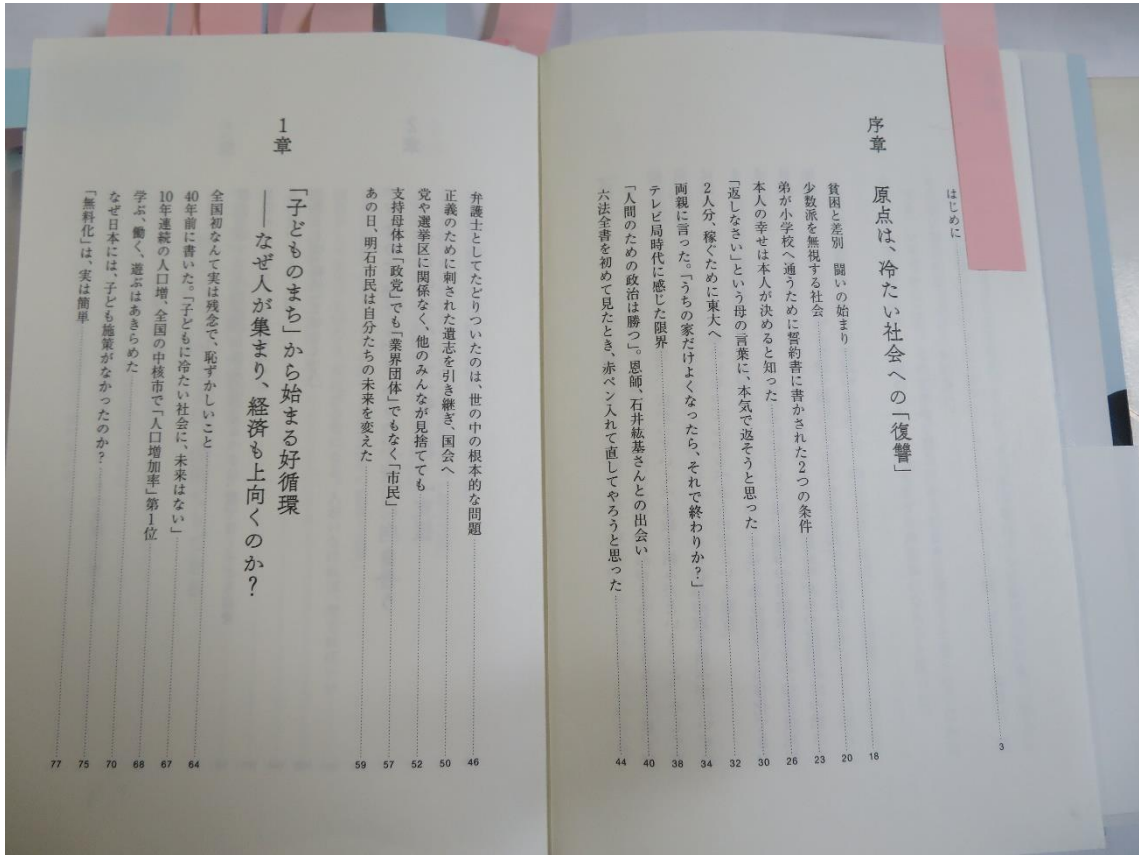 はじめに 3
序章 原点は、冷たい社会への「復讐」
貧困と差別 闘いの始まり 18
少数派を無視する社会 20
弟が小学校へ通うために誓約書に書かされた2つの条件 23
本人の幸せは本人が決めると知った 26
「返しなさい」という母の言葉に、本気で返そうと思った 30
2人分、稼ぐために東大へ 32
両親に言った。「うちの家だけよくなったら、それで終わりか?」 34
テレビ局時代に感じた限界 38
「人間のための政治は勝つ」。恩師、石井紘基さんとの出会い 40
六法全書を初めて見たとき、赤ペン入れて直してやろうと思った 44
弁護士としてたどりついたのは、世の中の根本的な問題 46
正義のために刺された遺志を引き継ぎ、国会へ 50
党や選挙区に関係なく、他のみんなが見捨てても 52
支持母体は「政党」でも「業界団体」でもなく「市民」 57
あの日、明石市民は自分たちの未来を変えた 59
1章 「子どものまち」から始まる好循環
――なぜ人が集まり、経済も上向くのか?
全国初なんて実は残念で、恥ずかしいこと 64
40年前に書いた。「子どもに冷たい社会に、未来はない」 67
10年連続の人口増、全国の中核市で「人口増加率」第1位 68
学ぶ、働く、遊ぶはあきらめた 70
なぜ日本には、子ども施策がなかったのか? 75
「無料化」は、実は簡単 77